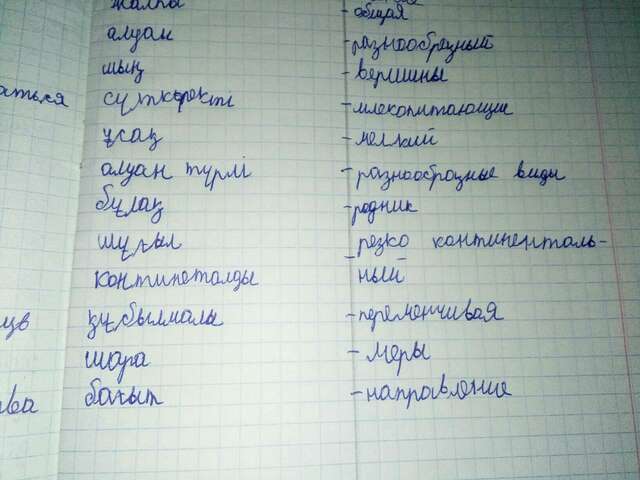 жалпы - общая
алуан - разнообразный
шың - вершины
сүткоректі - млекопитающие
ұсақ - мелкий
алуан түрлі - разнообразные виды
бұлақ - родник
шұғыл - резко континенталь-
континеталды ный
құбылмалы - переменчивая
шара - меры
бағыт - направление
аться
ва